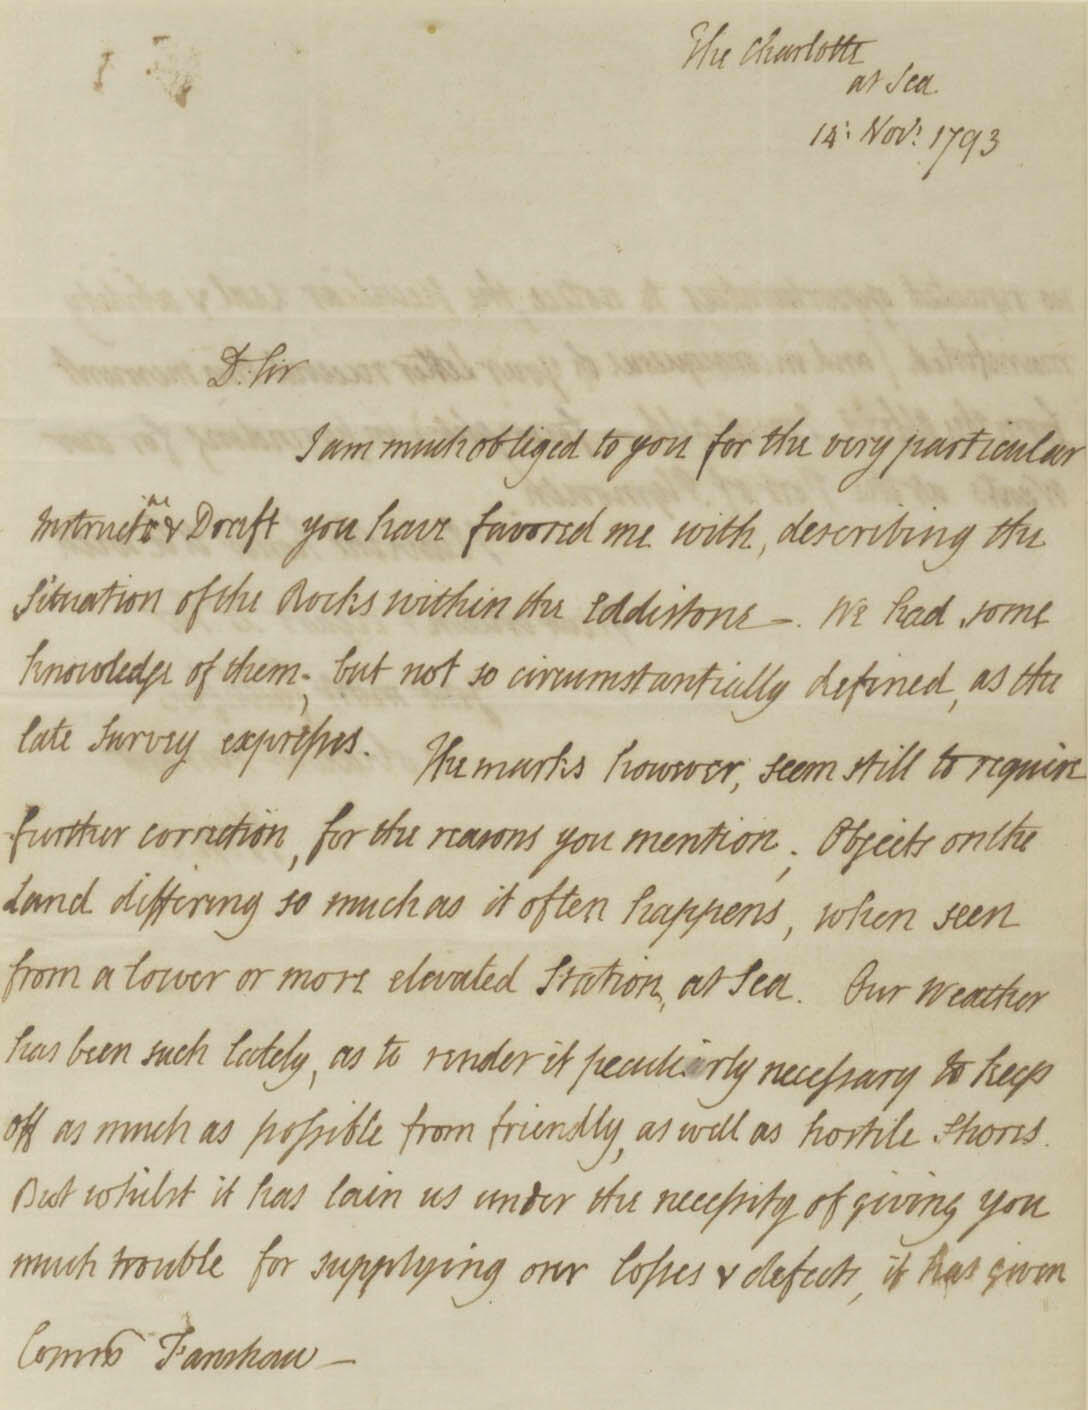 The Charlotte
at Sea.
14: Nov: 1793
Dr. Sir
I am much obliged to you for the very particular
Instructns & Draft you have favored me with, describing the
Situation of the Rocks within the Eddistone —. We had some
knowledge of them; but not so circumstantially defined, as the
late Survey expresses. The marks however, seem still to require
further correction, for the reasons you mention; Objects on the
Land differing so much as it often happens, when seen
from a lower or more elevated Station, at Sea. Our Weather
has been such lately, as to render it peculiarly necessary to keep
off as much as possible from friendly, as well as hostile Shores.
But whilst it has lain us under the necessity of giving you
much trouble for supplying our losses & defects, it has given
Commr Fanshaw —